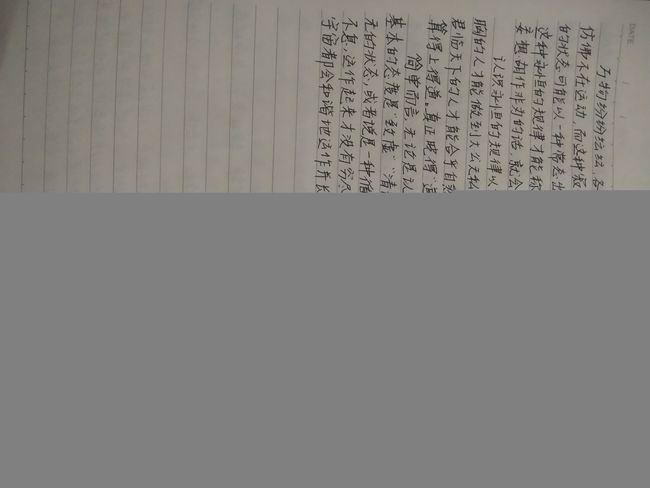 DATE
万物纷纷纭纭,各
仿佛不在运动,而这种寂
的状态可能以一种常态出
这种永恒的规律才能称
妄想胡作非为的话,就会
认识永恒的规律以
胸的人才能做到大公无私
君临天下的人才能合乎自然
算得上得道。真正晓得“道
简单而言,无论是认
基本的态度是“致虚”“清
无的状态,或者说是一种循
不息,运作起来才没有穷尽
宇宙都会和谐地运作并长